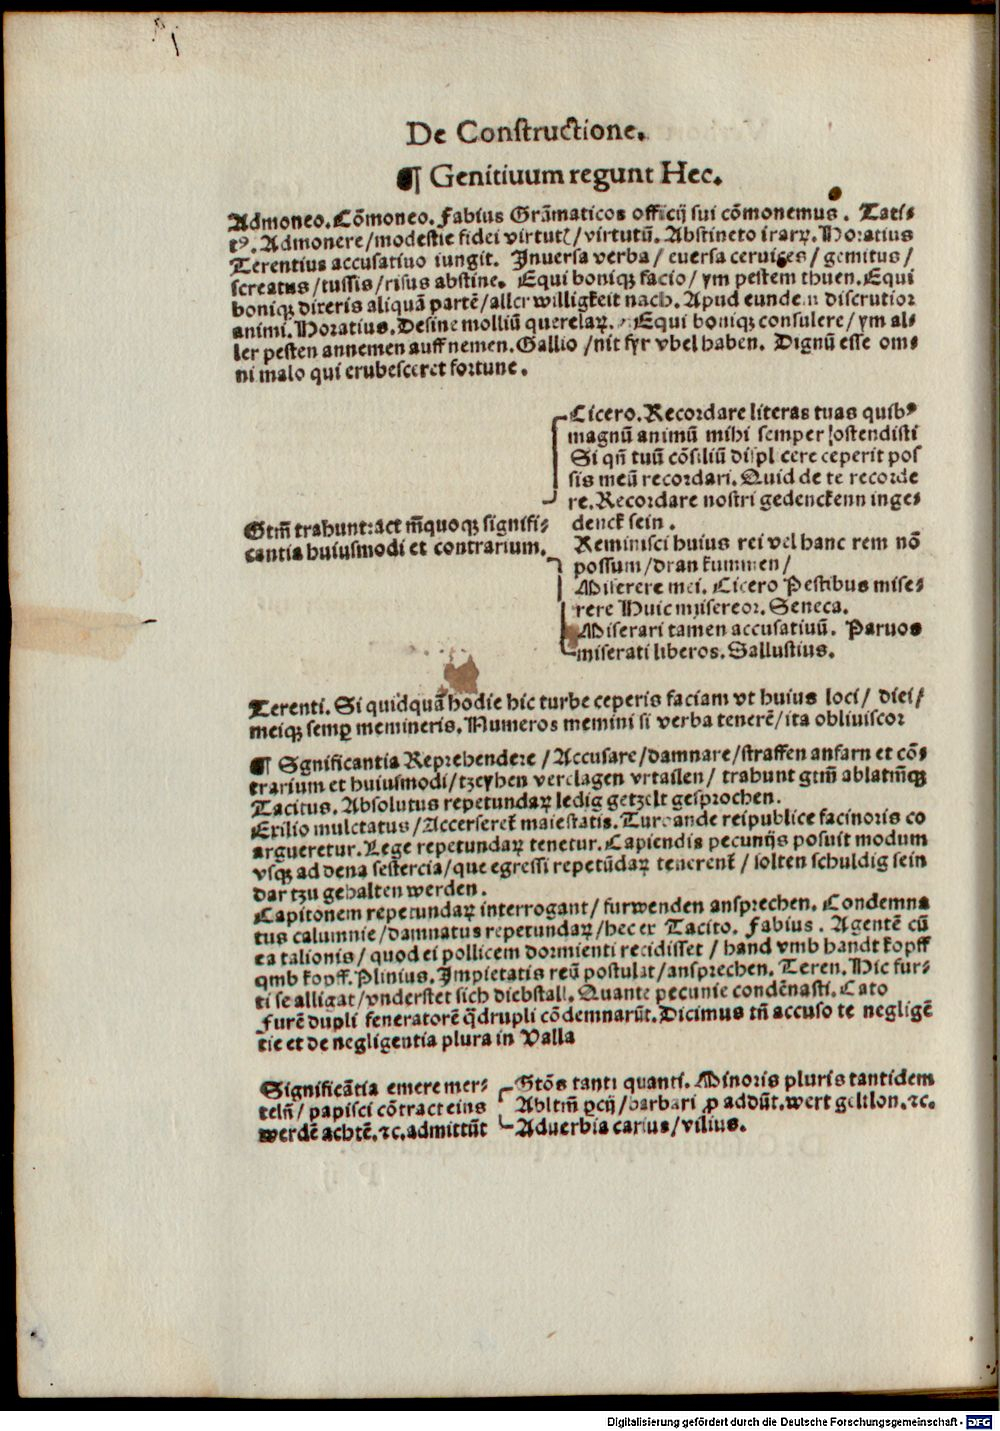 De Constructione.
¶ Genitiuum regunt Hec.
Admoneo. Cōmoneo. Fabius Grāmaticos officij sui cōmonemus. Tati⸗
tꝰ. Admonere/modestie fidei virtutꝭ/virtutū. Abstineto iraꝝ. Horatius
Terentius accusatiuo iungit. Inuersa verba/ euersa ceruices/ gemitus/
screatus/tussis/risus abstine. Equi boniqꝫ facio/ ym pestem thuen. Equi
boniqꝫ dixeris aliquā partē/aller willigkeit nach. Apud eundem discrutior
animi. Horatius. Desine molliū querelaꝝ. Equi boniqꝫ consulere/ ym al⸗
ler pesten annemen auff nemen. Gallio/nit fyr vbel haben. Dignū esse om⸗
ni malo qui erubesceret fortune.
Cicero. Recordare literas tuas quibꝰ
magnū animū mihi semper ostendisti
Si qn̄ tuū cōsiliū displicere ceperit pos
sis meū recordari. Quid de te recorde
re. Recordare nostri gedenckenn inge⸗
denck sein.
Gtm̄ trahunt: act m̄ quoqꝫ signifi⸗
cantia huiusmodi et contrarium.
Reminisci huius rei vel hanc rem nō
possum/dran kummen/
Miserere mei. Cicero Pestibus mise⸗
rere Huic misereor. Seneca.
Miserari tamen accusatiuū. Paruos
miserati liberos. Sallustius.
Terenti. Si quidquā hodie hic turbe ceperis faciam vt huius loci/ diei/
meiqꝫ semꝑ memineris. Numeros memini si verba tenerē/ita obliuiscor
¶ Sgnificantia Reprehendere/Accusare/damnare/straffen anfarn et cō⸗
trarium et huiusmodi/tzeyhen verclagen vrtaslen/ trahunt gtm̄ ablatm̄qꝫ
Tacitus. Absolutus repetundaꝝ ledig getzelt gesprochen.
Exilio mulctatus/Accerseretꝭ maiestatis. Turbande reipublice facinoris co
argueretur. Lege repetundaꝝ tenetur. Capiendis pecunijs posuit modum
vsqꝫ ad dena sestercia/que egressi repetūdaꝝ tenerentꝭ/ solten schuldig sein
dar tzu gehalten werden.
Capitonem repetundaꝝ interrogant/ furwenden ansprechen. Condemna
tus calumnie/damnatus repetundaꝝ/hec ex Tacito. Fabius. Agentē cū
ea talionis/ quod ei pollicem dormienti recidisset/ hand vmb handt kopff
qmb kopff. Plinius. Impietatis reū postulat/ansprechen. Teren. Hic fur⸗
ti se alligat/vnderstet sich diebstall. Quante pecunie condēnasti. Cato
Furē dupli feneratorē q̄drupli cōdemnarūt. Dicimus tn̄ accuso te negligē
tie et de negligentia plura in Valla
Significātia emere mer⸗
teln̄/ papisci cōtract eins
werdē achtē. ⁊c. admittūt
Gtōs tanti quanti. Minoris pluris tantidem
Abltm̄ p̄cij/barbari ꝓ addūt. wert gelt lon. ⁊c.
Aduerbia carius/vilius.
Digitalisierung gefördert durch die Deutsche Forschungsgemeinschaft - DFG